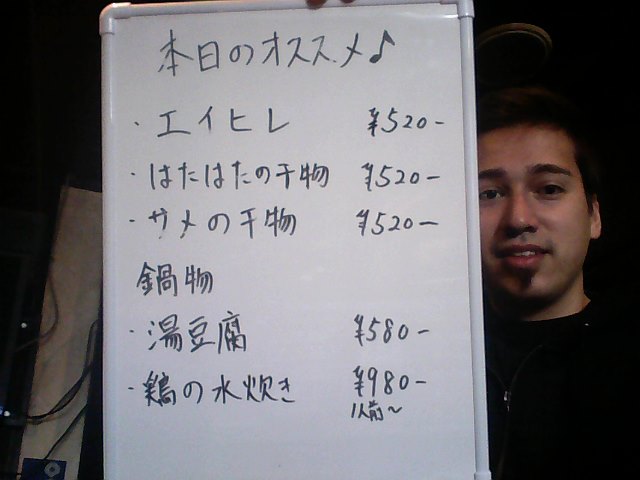 本日のオススメ♪
・エイヒレ ¥520-
・はたはたの干物 ¥520-
・サメの干物 ¥520-
鍋物
・湯豆腐 ¥580-
・鶏の水炊き ¥980-
1人前〜